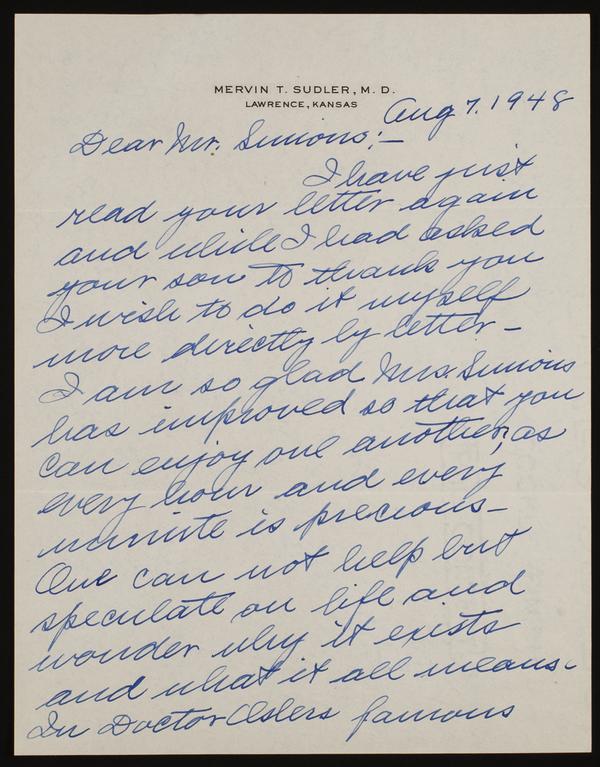 MERVIN T. SUDLER, M. D.
LAWRENCE, KANSAS
Aug 7. 1948
Dear Mr. Simons:—
I have just
read your letter again
and while I had asked
your son to thank you
I wish to do it myself
more directly by letter—
I am so glad Mrs Simons
has improved so that you
can enjoy one another, as
every hour and every
minute is precious—
One can not help but
speculate on life and
wonder why it exists
and what it all means.
In Doctor Oslers famous